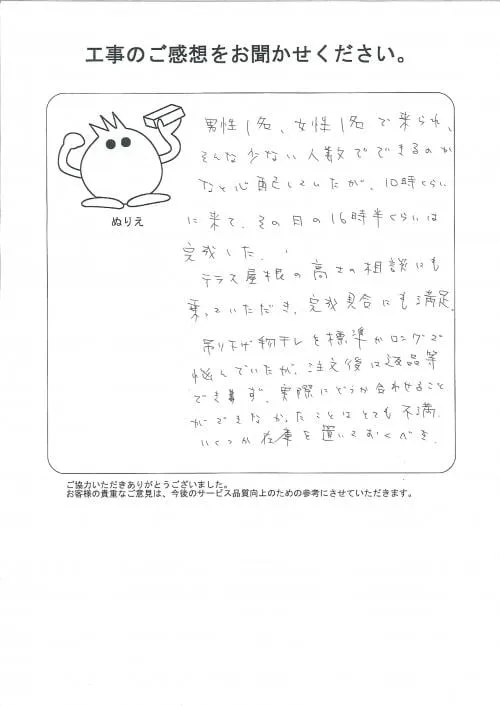 工事のご感想をお聞かせください。
ぬりえ
男性1名、女性1名で来られ、
そんな少ない人数でできるのか
なと心配していたが、10時くらい
に来て、その日の16時半くらいには
完成した。
テラス屋根の高さの相談にも
乗っていただき、完成具合にも満足。
吊り下げ物干しを標準かロングで
悩んでいたが、注文後は返品等
できず、実際にどうか合わせること
ができなかったことはとても不満。
いくつか在庫を置いておくべき。
ご協力いただきありがとうございました。
お客様の貴重なご意見は、今後のサービス品質向上のための参考にさせていただきます。